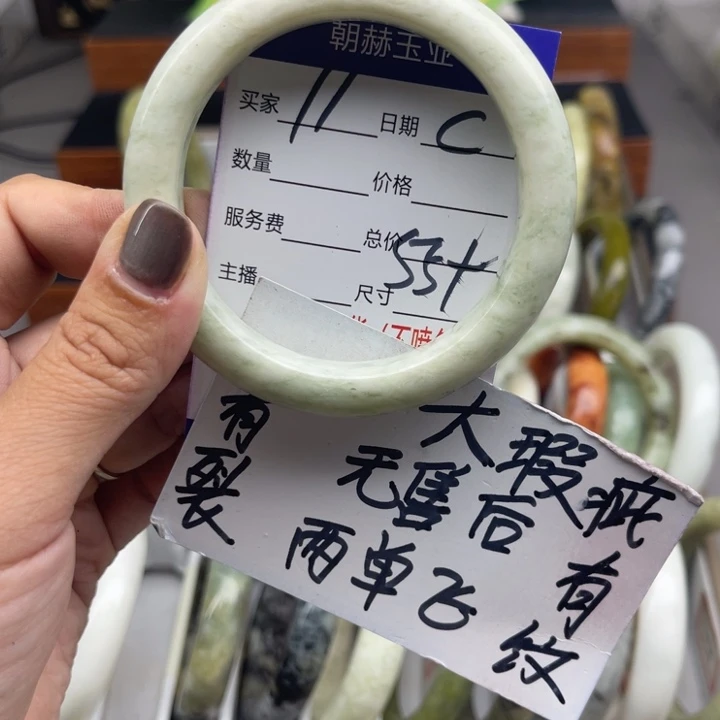 朝赫玉业
买家 11 日期 C
数量 价格
服务费 总价 55+
主播 尺寸
大瑕疵
无售后
两单飞
有纹
有裂